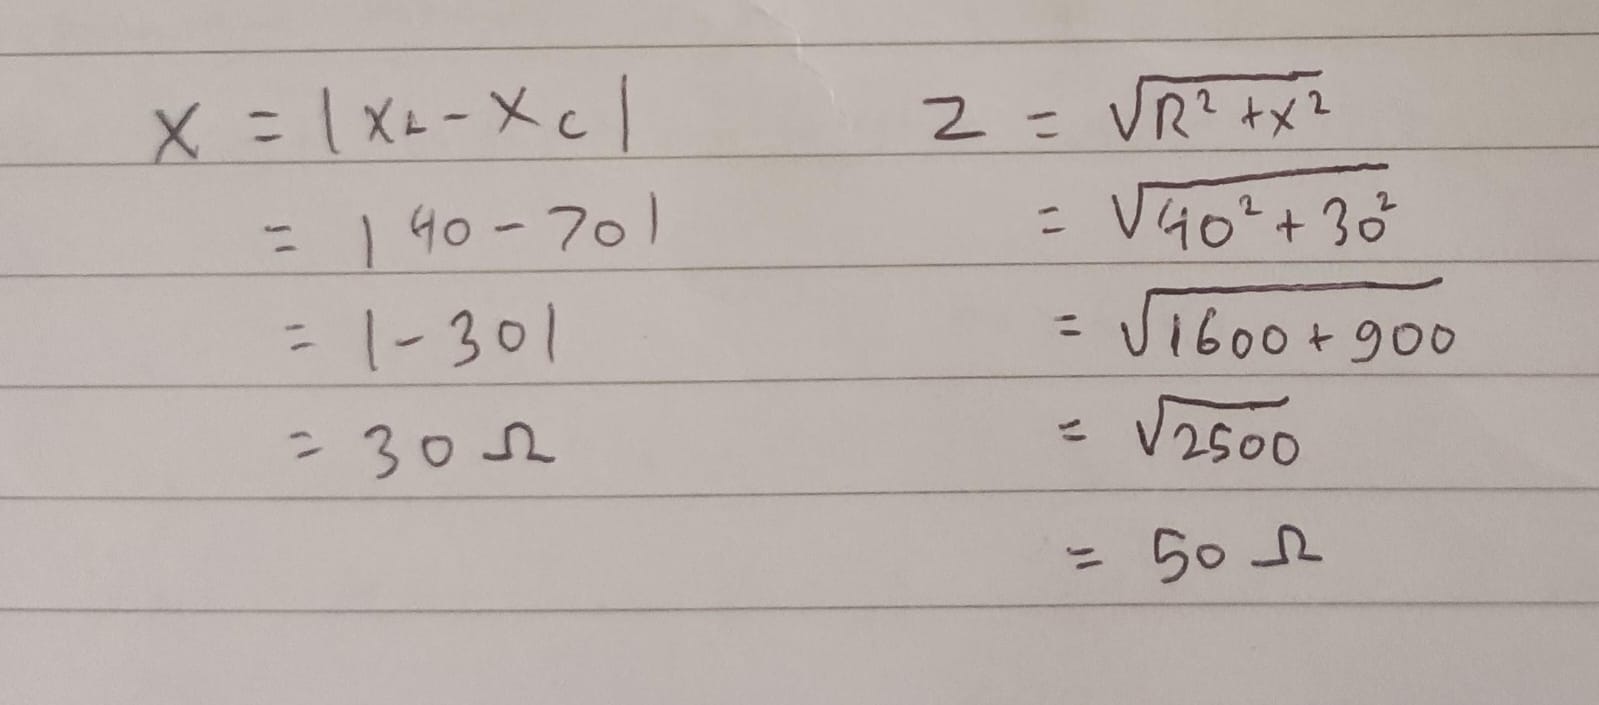 X = |XL - XC|
= |40 - 70|
= |-30|
= 30 Ω
Z = √R² + X²
= √40² + 30²
= √1600 + 900
= √2500
= 50 Ω